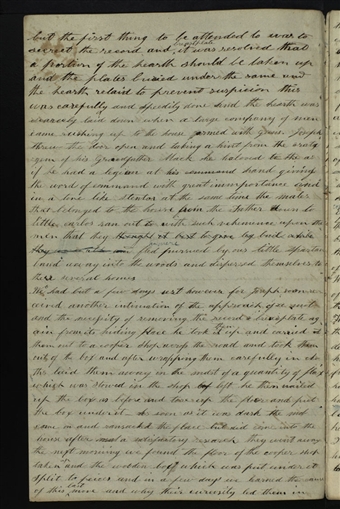 but the first thing to be attended to was to
secret the record and breastplate it was resolved that
a portion of the hearth should be taken up
and the plates buried under the same and
the hearth relaid to prevent suspicion this
was carefully and speedily done but the hearth was
scarcely laid down when a large company of men
came rushing up to the house armed with guns Joseph
threw the door open and taking a hint from the
of his Grandfather Mack he hallowed to them as
if he had a legion at his command hand giving
the word of command with great importance
in a tone like Stentor at the same time the males
that belonged to the house from the Father down to
little carlos ran out with such vehemence upon the
men that they
fled pursued by our little spartan
band away into the woods and dispersed themselves to
their several homes
We had but a few days rest however for Joseph
received another intimation of the approach of a mob
and the necessity of removing the record & breastplate
again from its hiding place he took them up and carried
them out to a coopers shop across the road and took them
out of the box and after wrapping them carefully in
he laid them away in the midst of a quantity of flax
which was stowed in the shop loft he then nailed
up the box as before and tore up the floor and put
the box under it. As soon as it was dark the mob
came and ransacked the place but did not come into the
house after a satisfactory research they went away
the next morning we found the floor of the cooper shop
taken and the wooden box which was put under it
split to pieces and in a few days we learned the
of this last and why their curiosity led them in